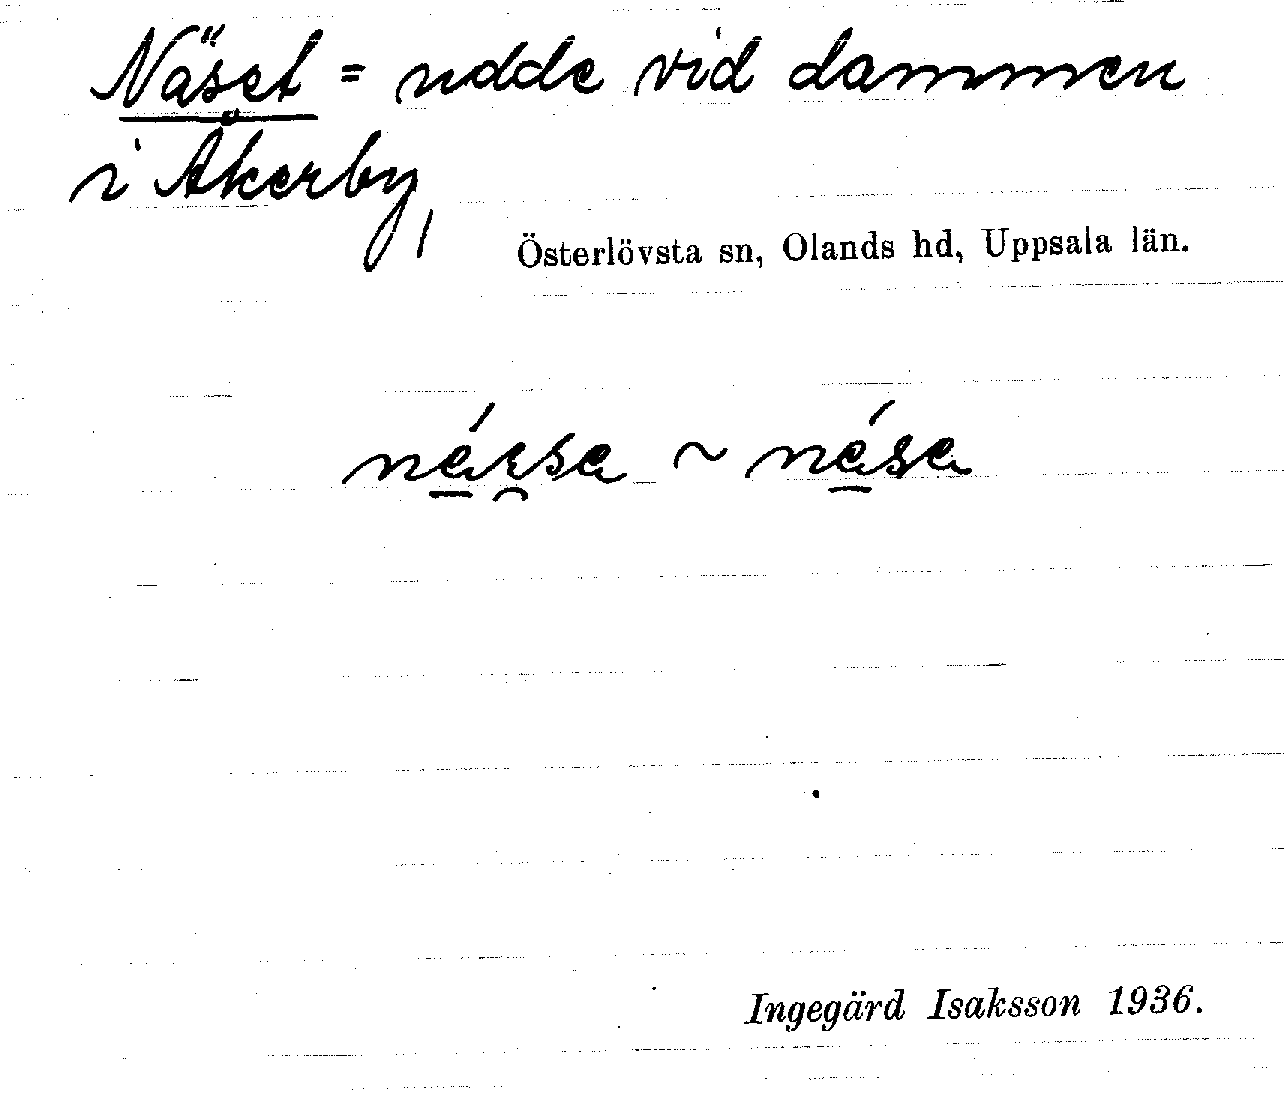 Näset = udde vid dammen
i Åkerby,
Österlövsta sn, Olands hd, Uppsala län.
~
Ingegärd Isaksson 1936.